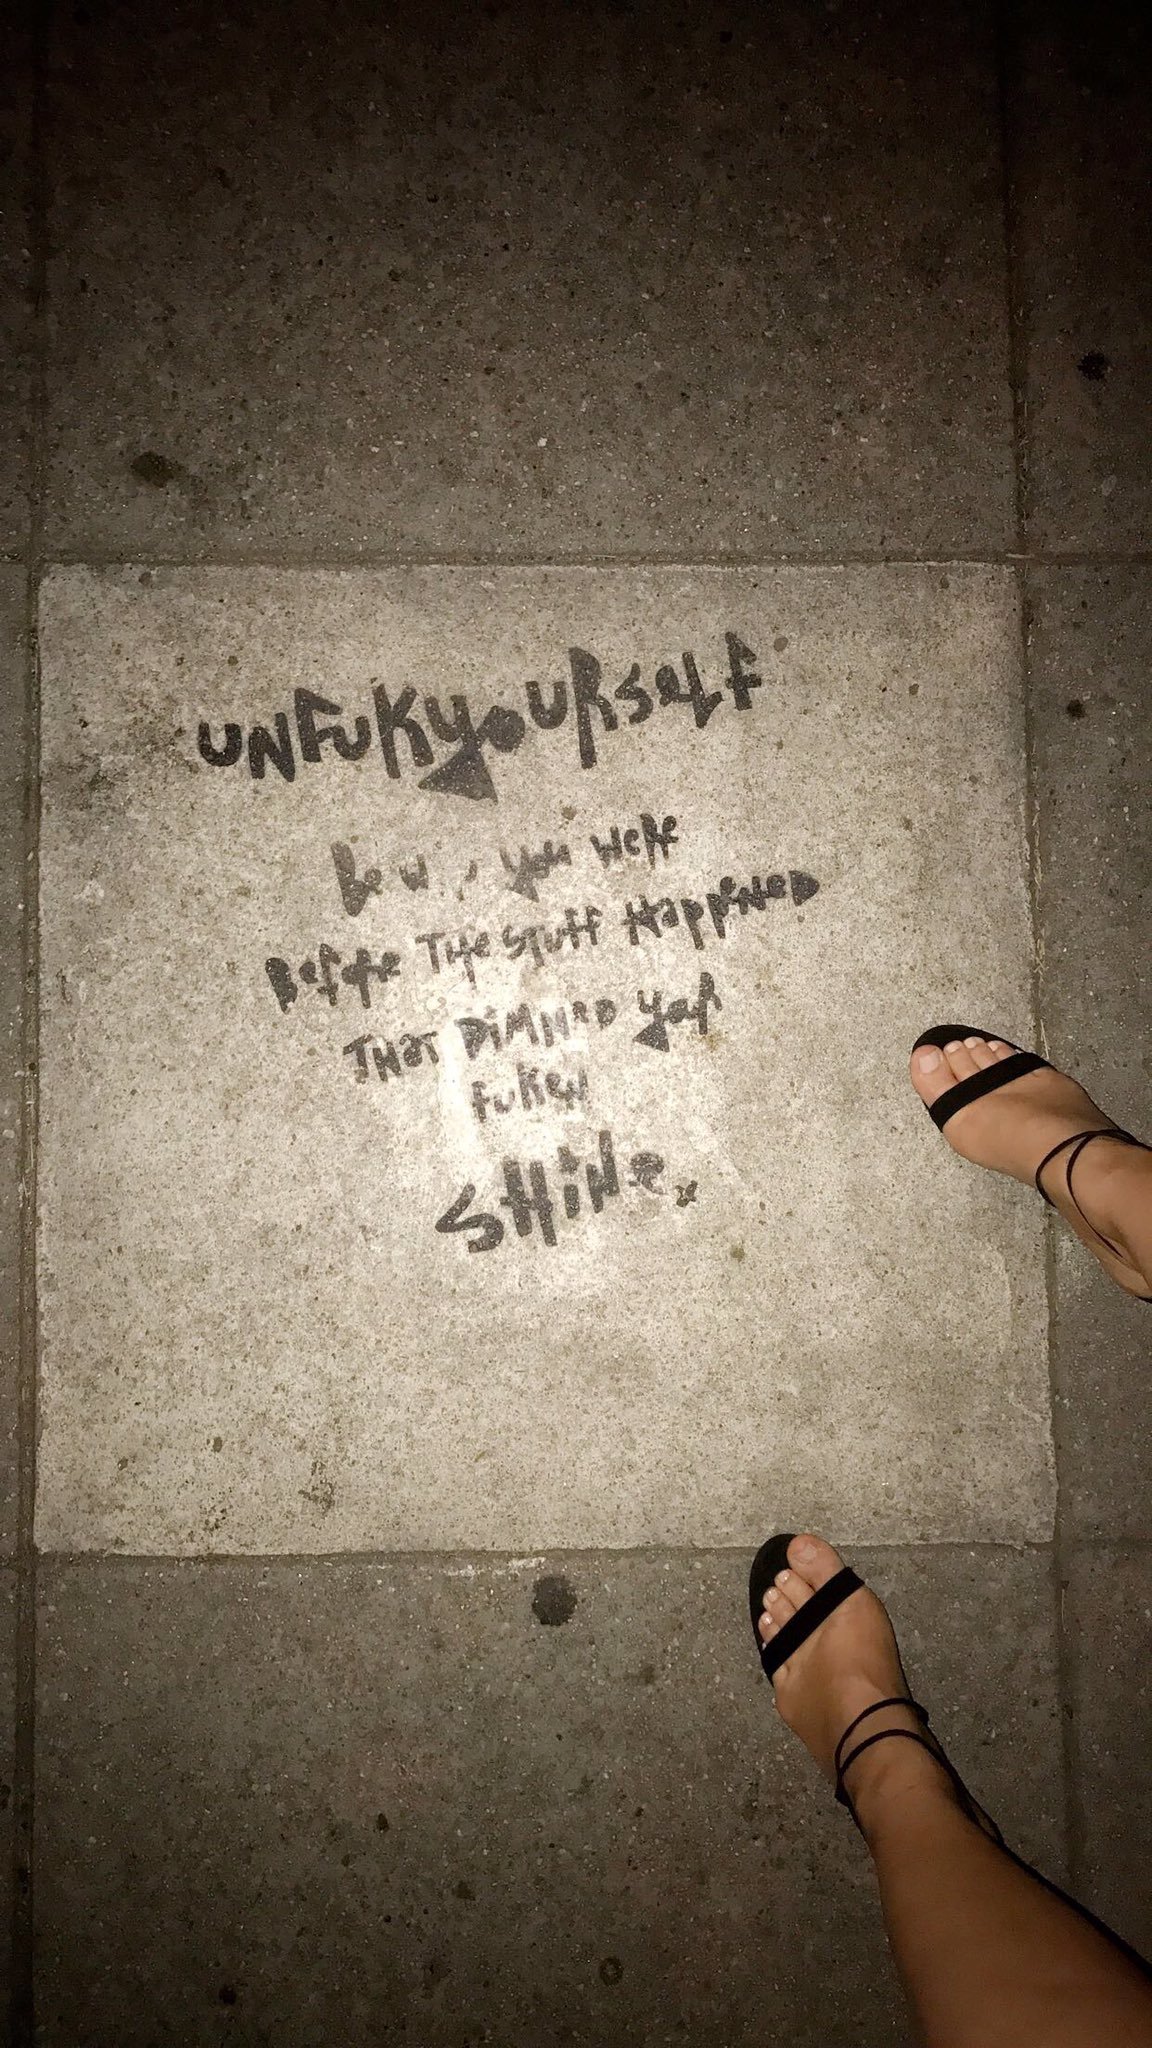 UNFUKYOURSELF
Be w , you were
Before THe STUFF HAPPENED
THAT DiMMED YoR
FUKEN
SHiNe.